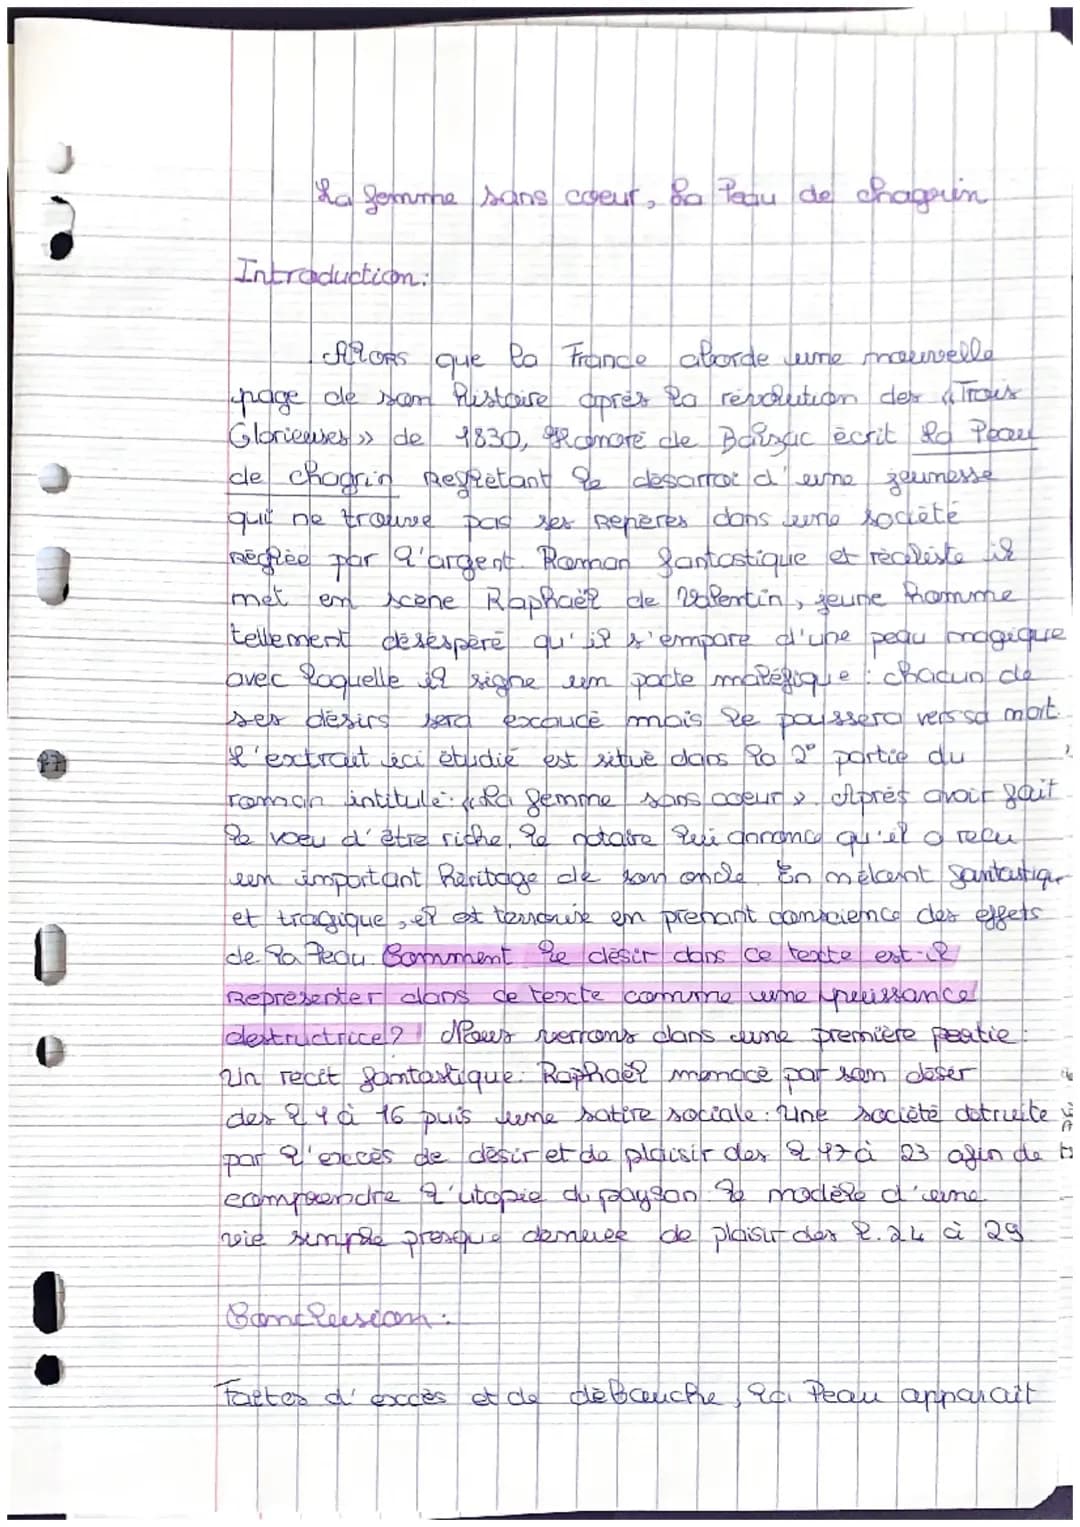 La femme sans coeur, La Peau de chagrin
Introduction:
Alors que la France aborde une nouvelle
page de son histoire après la révolution des « Trois
Glorieuses » de 1830, Honoré de Balzac écrit La Peau
de chagrin Reflétant le désarroi d'une jeunesse
qui ne trouve pas ses Repères dans une société
Réglée par l'argent. Roman fantastique et réaliste il
met en scène Raphaël de Valentin, jeune homme
tellement désespéré qu'il s'empare d'une peau magique
avec laquelle il signe un pacte maléfique : chacun de
ses désirs sera exaucé mais le poussera vers sa mort.
L'extrait ici étudié est situé dans la 2° partie du
roman intitulé: « La femme sans coeur ». Après avoir fait
le voeu d'être riche, le notaire lui annonce qu'il a reçu
un important héritage de son oncle. En mêlant fantastique
et tragique, il est en prenant conscience des effets
de la Peau. Comment le désir dans ce texte est-il
Représenter dans ce texte comme une puissance
destructrice? Nous verrons dans une première partie :
Un récit fantastique: Raphaël menacé par son désir
des l 1 à 16 puis une satire sociale : Une société détruite
par l'excès de désir et de plaisir des l 17 à 23 afin de
comprendre l'utopie du paysan le modèle d'une
vie simple presque de plaisir des l. 24 à 29
Conclusion :
d'excès et de débauche, la Peau apparait